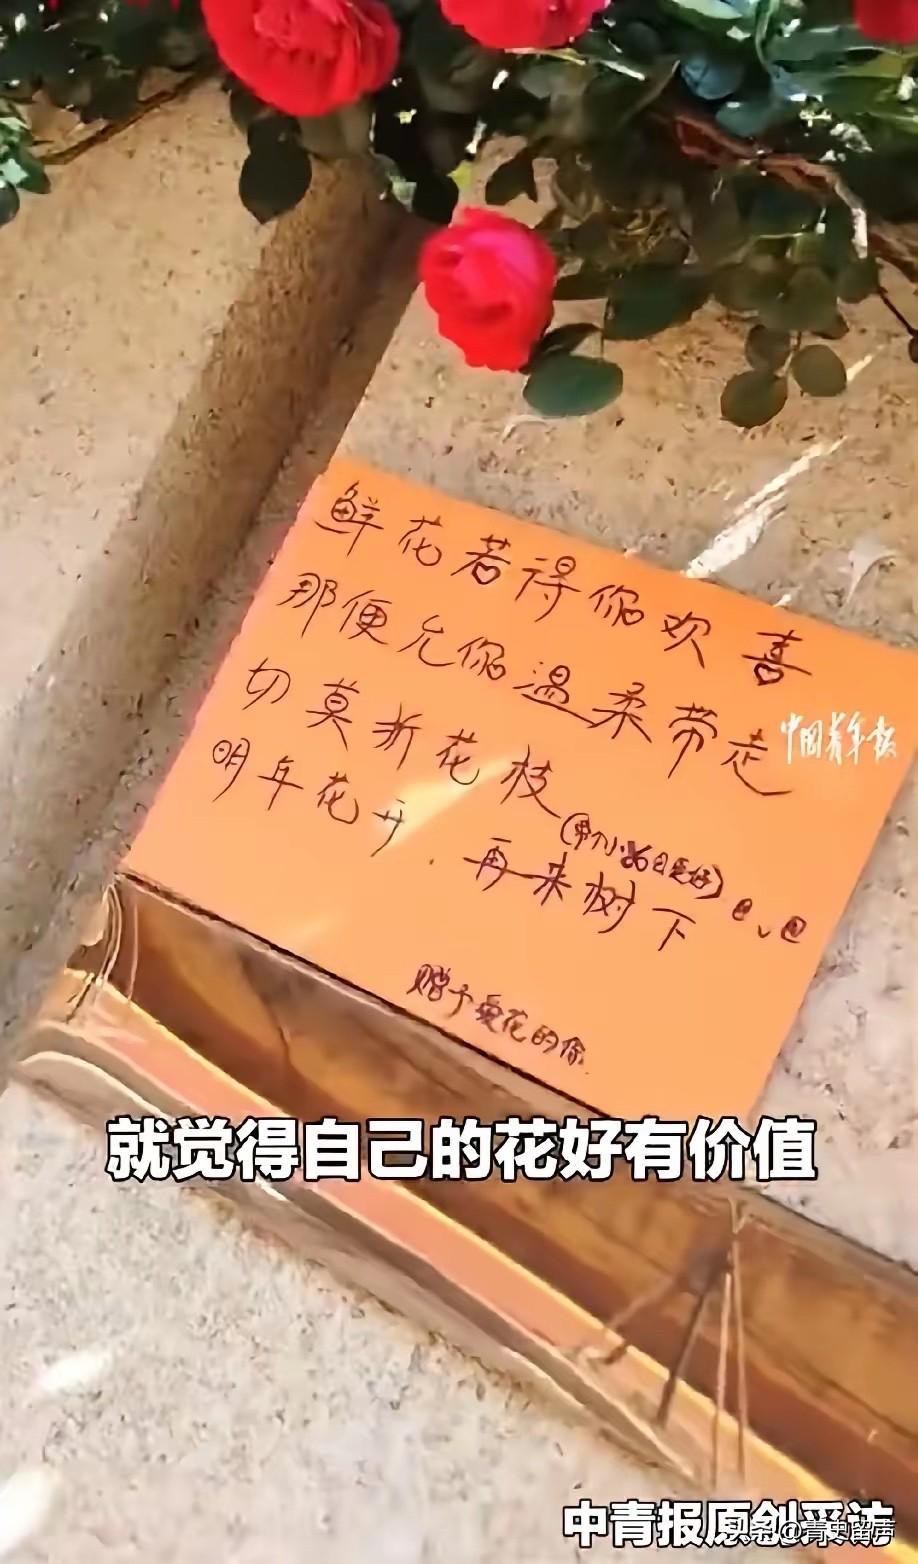 鲜花若得你欢喜
那便允你温柔带走
中国青年报
切莫折花枝
明年花开.再来树下
赠予爱花的你.
就觉得自己的花好有价值
中青报原创采访
头条@青史留声